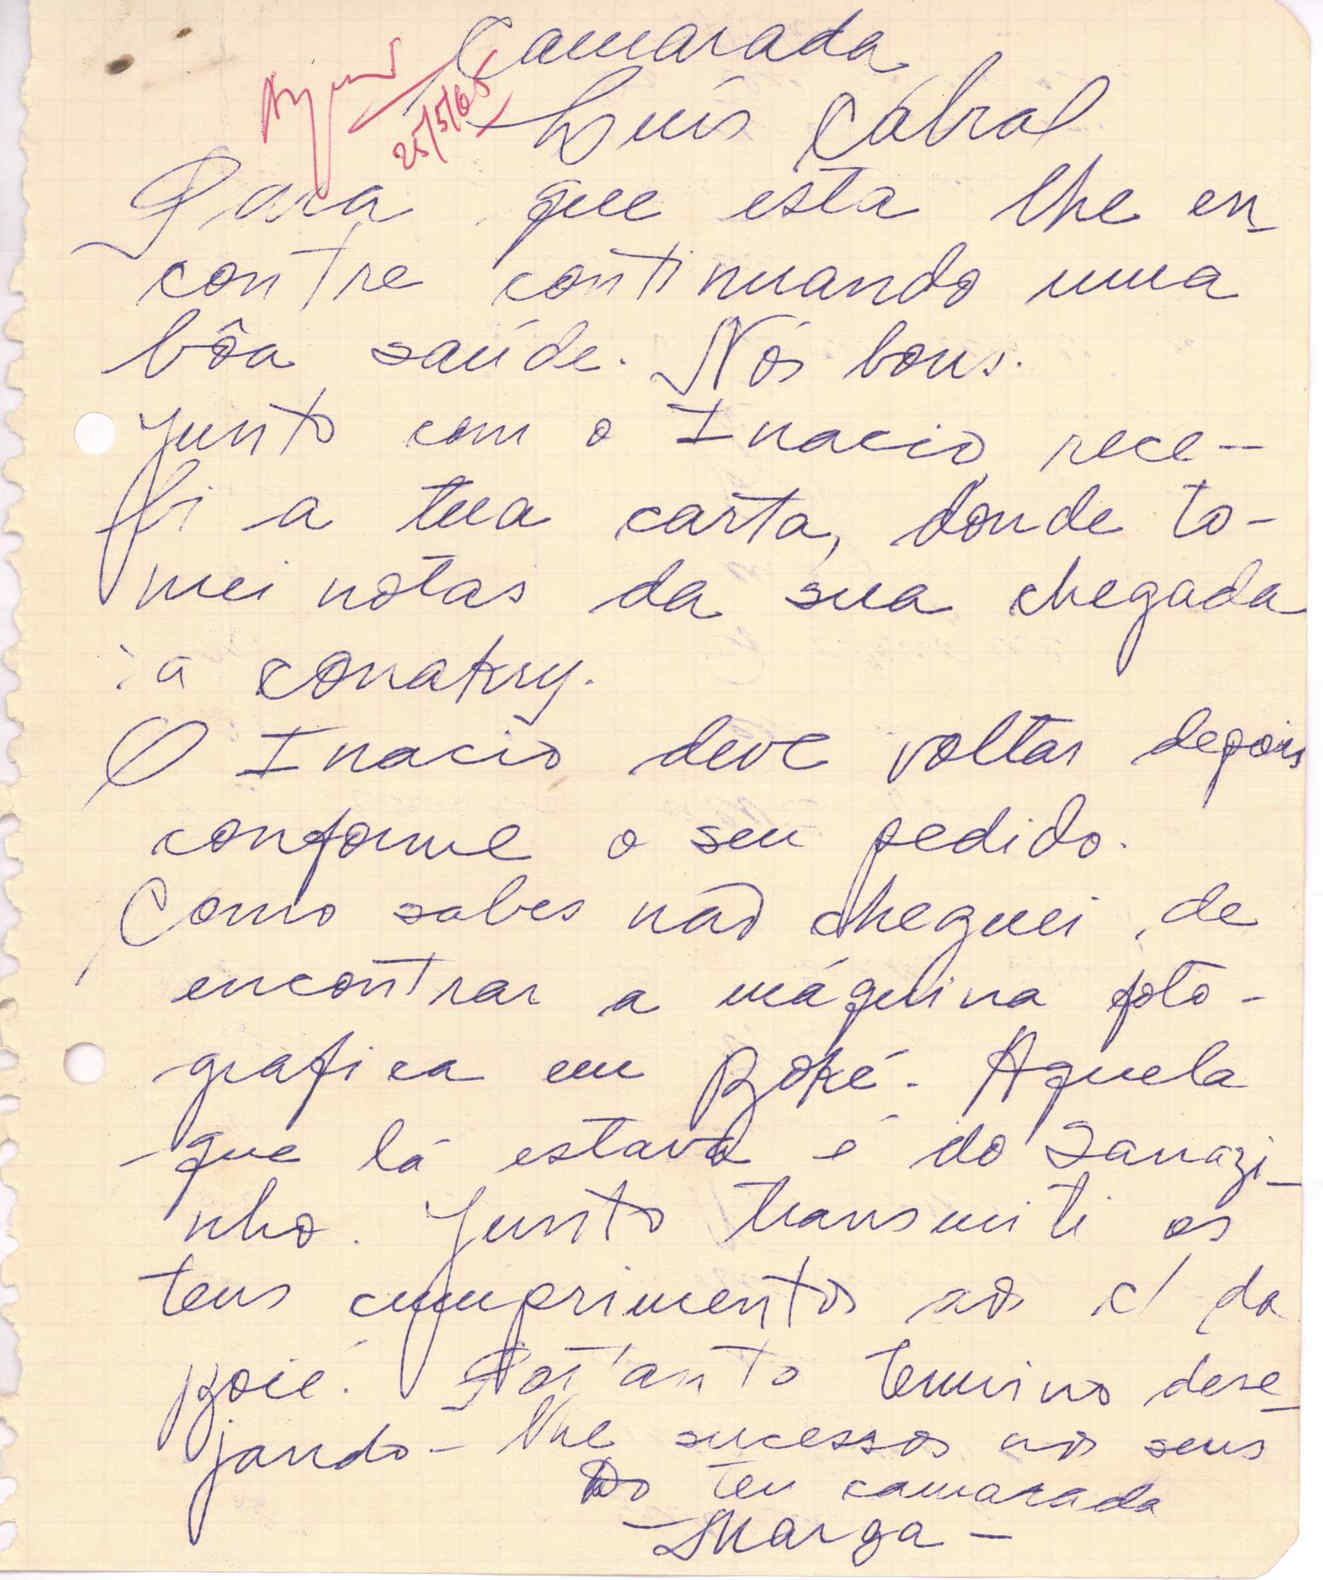 Camarada
25/5/65
Luís Cabral
Para que esta lhe en-
contre continuando uma
bôa saúde. Nós bons.
Junto com o Inacio rece-
bi a tua carta, donde to-
mei notas da sua chegada
à Conakry.
O Inacio deve voltar depois
conforme o seu pedido.
Como sabes não cheguei de
encontrar a máquina foto-
grafica em Boké. Aquela
que lá estava é do Sanazi-
nho. Junto transmiti os
teus cumprimentos aos c/ da
Boié. Portanto termino dese-
jando-lhe sucessos nos seus
Do teu camarada